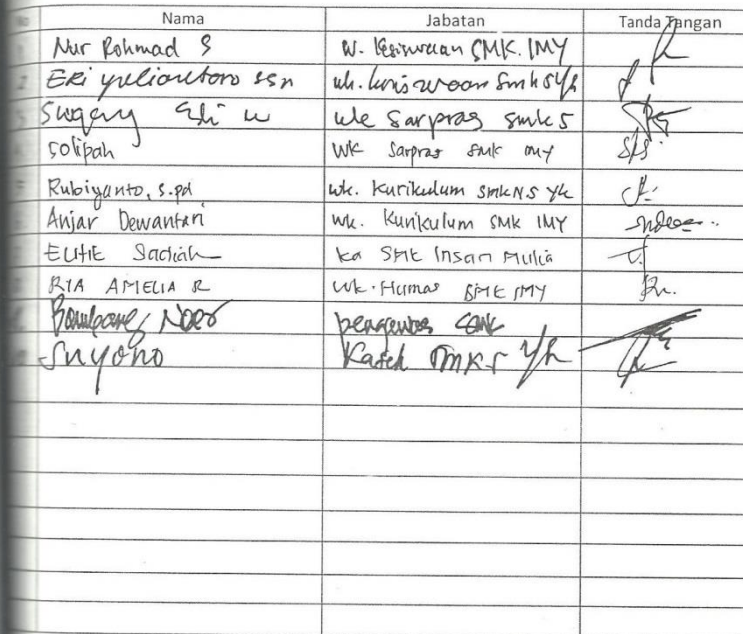 No Nama Jabatan Tanda Tangan
Nur Rohmad S W. Kesiswaan SMK. IMY
2 Eri yuliantoro SSn wk. kesiswaan Smk 5 Yk
Sugeng wk Sarpras smk 5
Solipah WK Sarpras SMK IMY
Rubiyanto, S.pd wk. Kurikulum SMKN 5 Yk
Anjar Dewantari wk. Kurikulum SMK IMY
Sadiah ka SMK Insan Mulia
RIA AMELIA R wk. Humas SMK IMY
Bambang Noer pengawas SMK
Suyono Kasek SMK 5 Yk